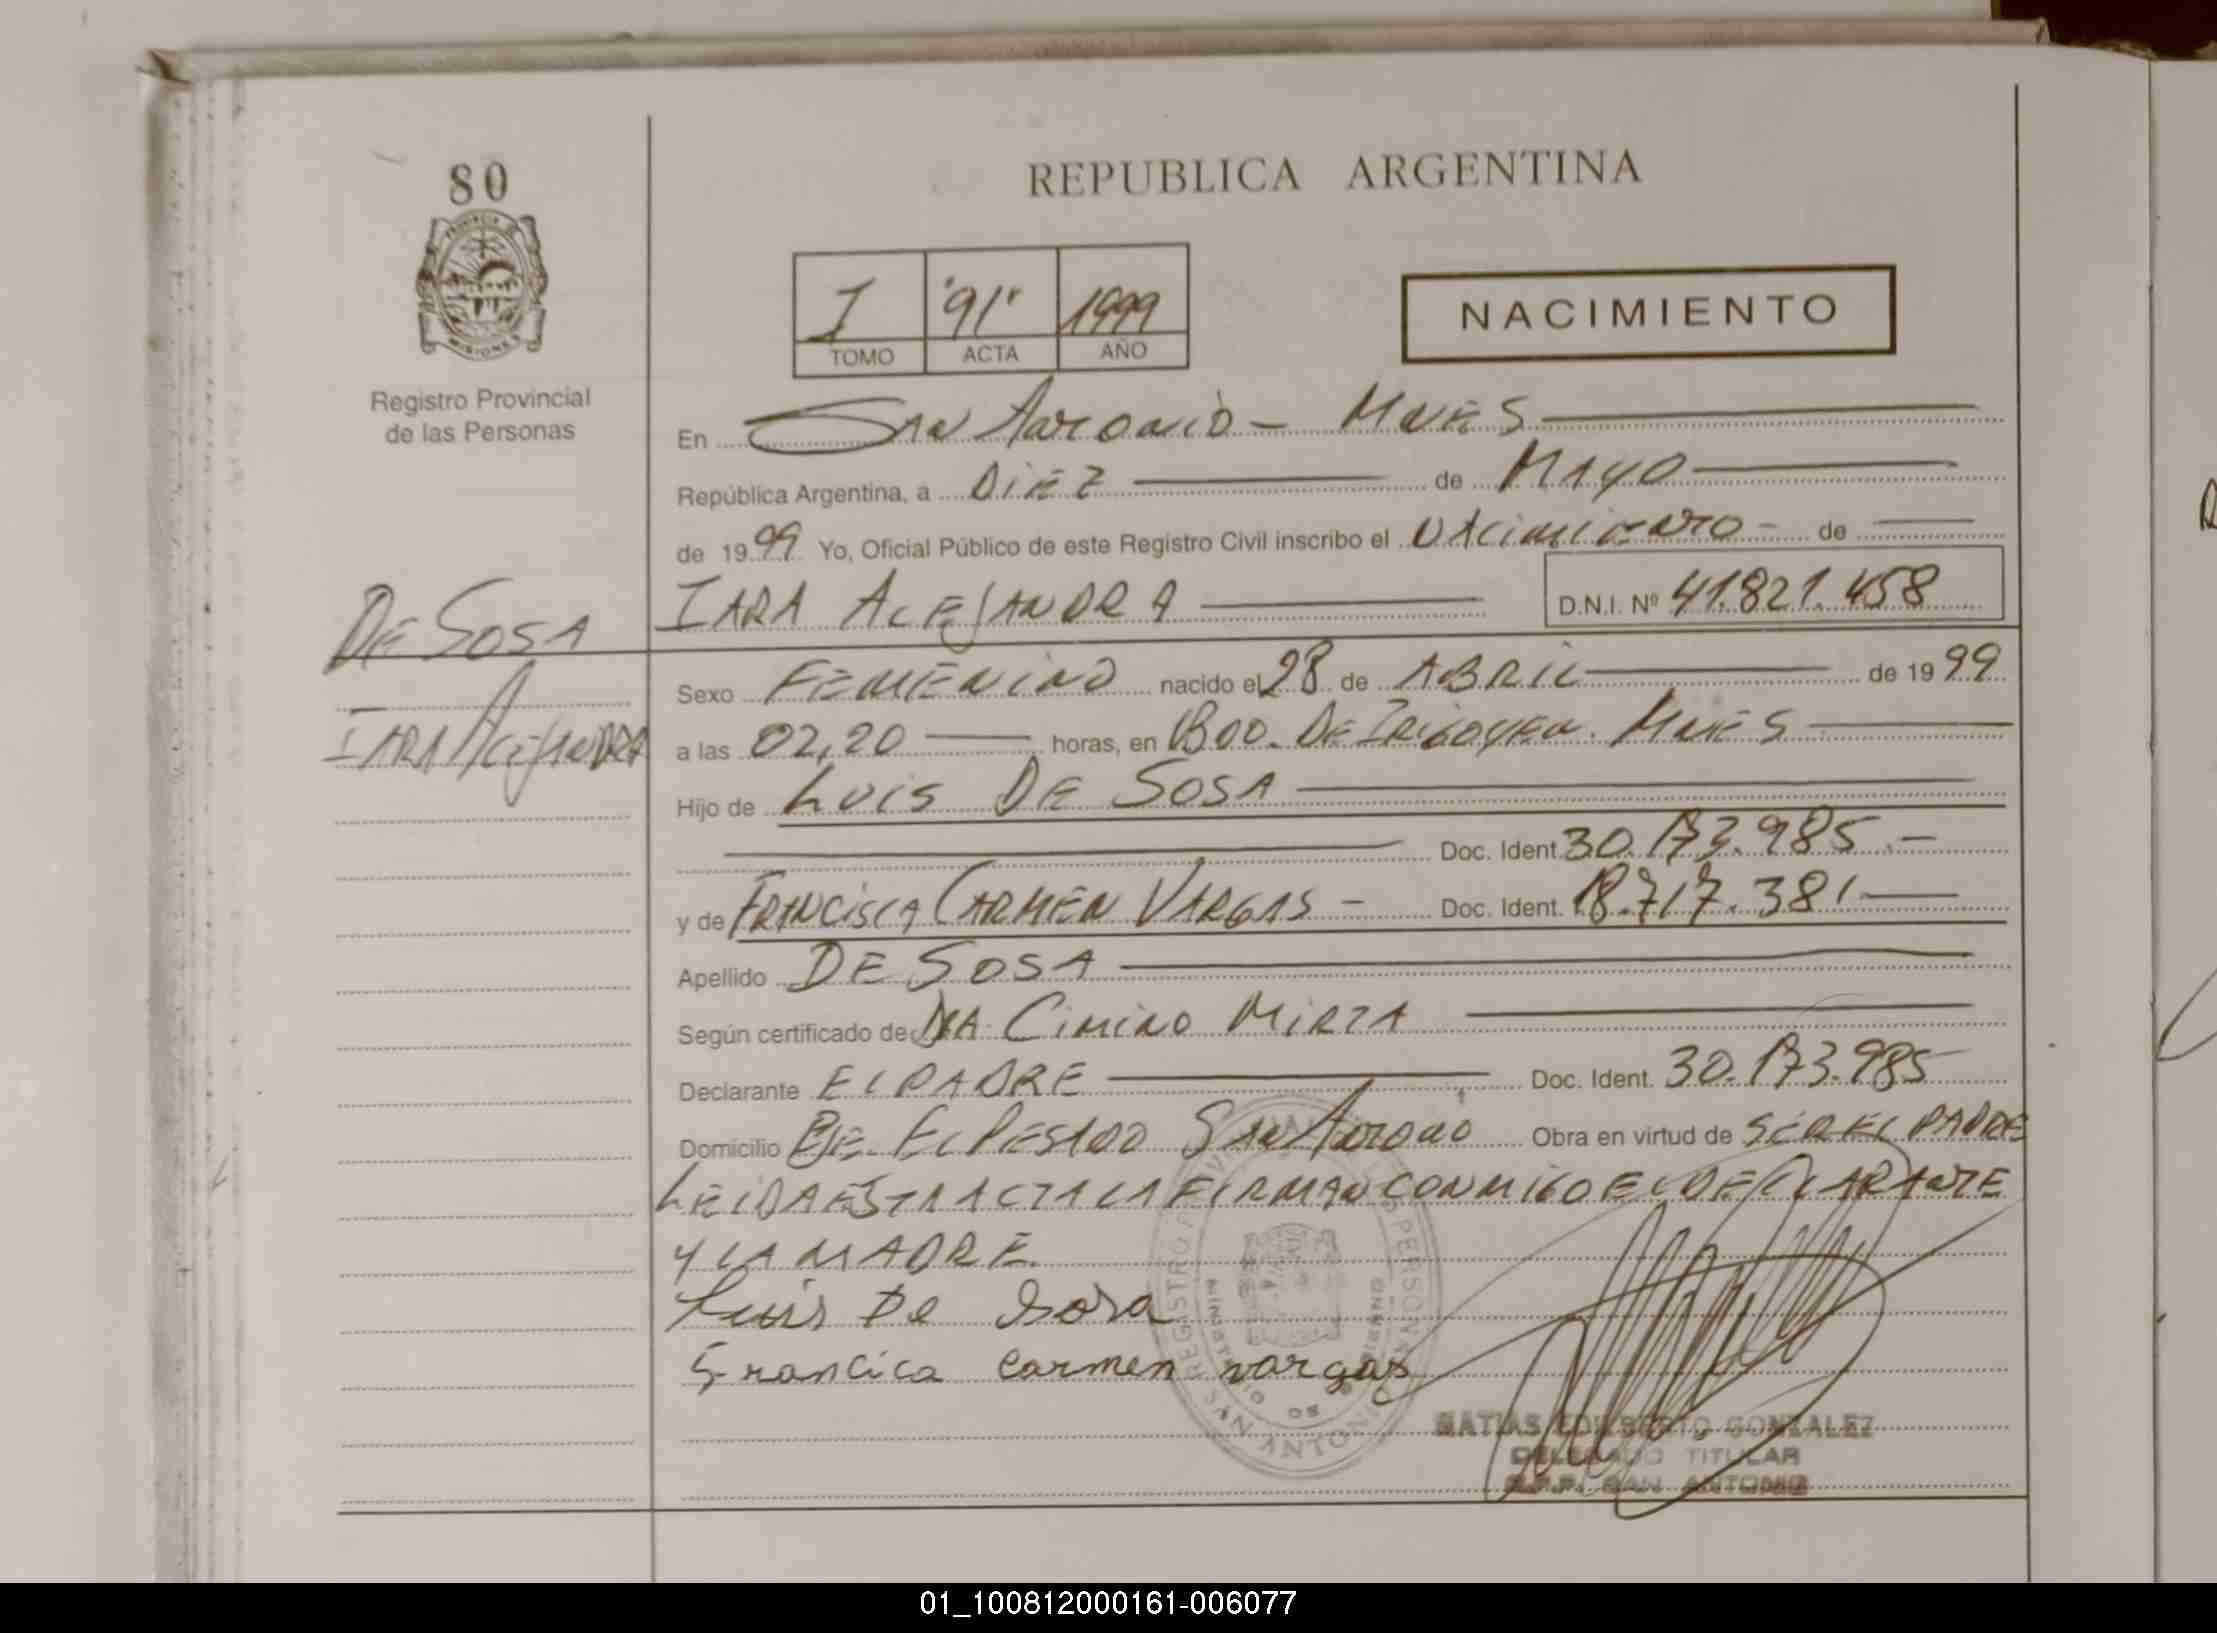 80
PROVINCIA DE
MISIONES
Registro Provincial
de las Personas
REPUBLICA ARGENTINA
I "91" 1999
TOMO ACTA AÑO
NACIMIENTO
En San Antonio - Mnes
República Argentina, a DiEZ de MAYO
de 1999 Yo, Oficial Público de este Registro Civil inscribo el NAcimiento - de
IARA ALEJANDRA D.N.I. Nº 41.821.458
DE SOSA
IARA AlejANDRA
Sexo FEMENiNO nacido el 28 de ABRIL de 1999
a las 02,20 horas, en BDO. DE IRIGOYEN. MNES
Hijo de LUIS DE SOSA
Doc. Ident. 30.173.985.-
y de FRANCISCA CARMEN VARGAS - Doc. Ident. 18.717.381
Apellido DE SOSA
Según certificado de DRA. CIMINO MIRTA
Declarante EL PADRE Doc. Ident. 30.173.985
Domicilio PJE. EL PESADO SAN ANTONIO Obra en virtud de SER EL PADRE
LEIDA ESTA ACTA LA FIRMAN CONMIGO EL DECLARANTE
Y LA MADRE.
Luis De Sosa
Francica Carmen vargas
MATIAS EDILBERTO GONZALEZ
DELEGADO TITULAR
R.P.P. SAN ANTONIO
01_100812000161-006077